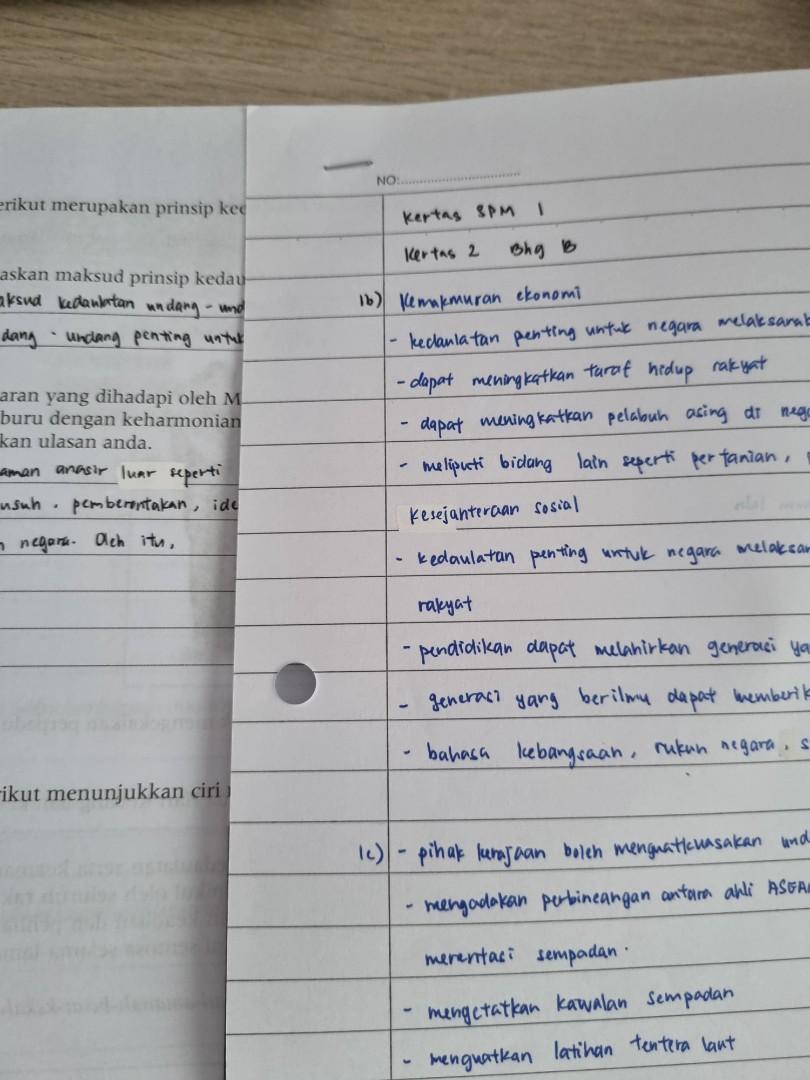 erikut merupakan prinsip ked
askan maksud prinsip kedau
aksud kedaulatan undang - und
dang - undang penting untuk
aran yang dihadapi oleh M
buru dengan keharmonian
kan ulasan anda.
aman anasir luar seperti
usuh, pemberontakan, ide
n negara. Oleh itu,
ikut menunjukkan ciri
NO:
Kertas SPM 1
Kertas 2 Bhg B
1b) Kemakmuran ekonomi
- kedaulatan penting untuk negara melaksanak
- dapat meningkatkan taraf hidup rakyat
- dapat meningkatkan pelabuh asing di nega
- meliputi bidang lain seperti pertanian,
Kesejahteraan sosial
- kedaulatan penting untuk negara melaksan
rakyat
- pendidikan dapat melahirkan generasi ya
- generasi yang berilmu dapat memberik
- bahasa kebangsaan, rukun negara, s
1c) - pihak kerajaan boleh menguatkuasakan und
- mengadakan perbincangan antara ahli ASEA
merentasi sempadan.
- mengetatkan kawalan sempadan
- menguatkan latihan tentera laut